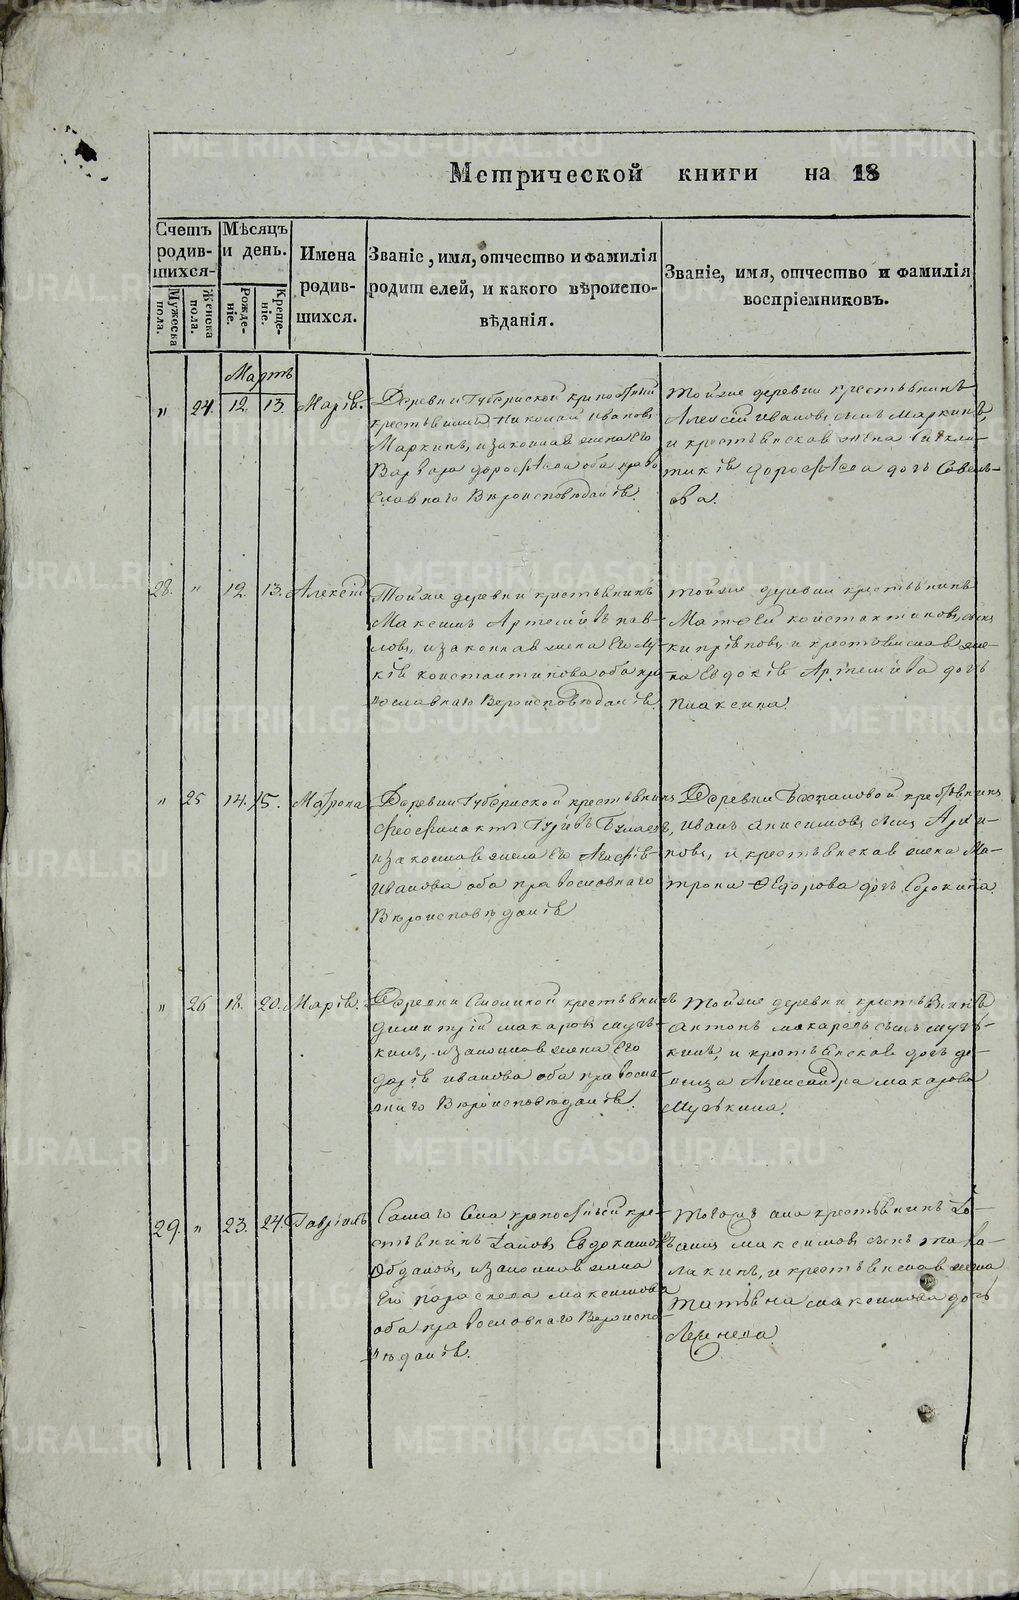 Метрической книги на 18
Счетъ родив-шихся.
Мужеска пола.
Женска пола.
Мѣсяцъ и день.
Рожде-ніе.
Креще-ніе.
Имена родив-шихся.
Званіе, имя, отчество и фамилія
родителей, и какого вѣроиспо-
вѣданія.
Званіе, имя, отчество и фамилія
воспріемниковъ.
Мартъ
" 24. 12. 13. Марія.
Деревни Губернской крѣпостный
крестьянинъ Николай Ивановъ
Маркинъ, и законная жена Его
Варвара Дорофѣева оба право
славнаго Вѣроисповѣданія.
Тойже деревни крестьянинъ
Алексій Ивановъ сынъ Маркинъ,
и крестьянская жена
дорофѣева дочь Савель-
ева.
28. " 12. 13. Алексій
Тойже деревни крестьянинъ
Максимъ Артеміевъ пав-
ловъ, и законная жена Его Лу-
кія константинова оба пра
вославнаго Вероисповѣданія.
Тойже деревни крестьянинъ
Матфей константиновъ сынъ
кипріяновъ, и крестьянская же-
на Евдокія Артеміева дочь
Плаксина.
" 25 14. 15. Матрона
Деревни Губернской крестьянинъ
Феофилактъ Гурьевъ
и законная жена Его Агафія
Иванова оба православнаго
Вѣроисповѣданія
Деревни крестьянинъ
Иванъ Анисимовъ сынъ Архи-
повъ, и крестьянская жена Ма-
трона Федорова дочь Сорокина.
" 26 18. 20. Марія.
Деревни крестьянинъ
Димитрій макаровъ
кинъ, и законная жена Его
Дарія иванова оба правосла
внаго Вѣроисповѣданія.
Тойже деревни крестьянинъ
Антонъ макаровъ сынъ
кинъ, и крестьянская дочь де-
вица Александра макарова
29. " 23. 24. Гавріилъ
Самаго Села крепостный кре-
стьянинъ Іаковъ Евдокимовъ
и законная жена
Его параскева максимова
оба православнаго Вероиспо-
вѣданія.
Тогожъ села крестьянинъ Іо-
аннъ максимовъ сынъ
и крестьянская жена
Татьяна максимова дочь
METRIKI.GASO-URAL.RU